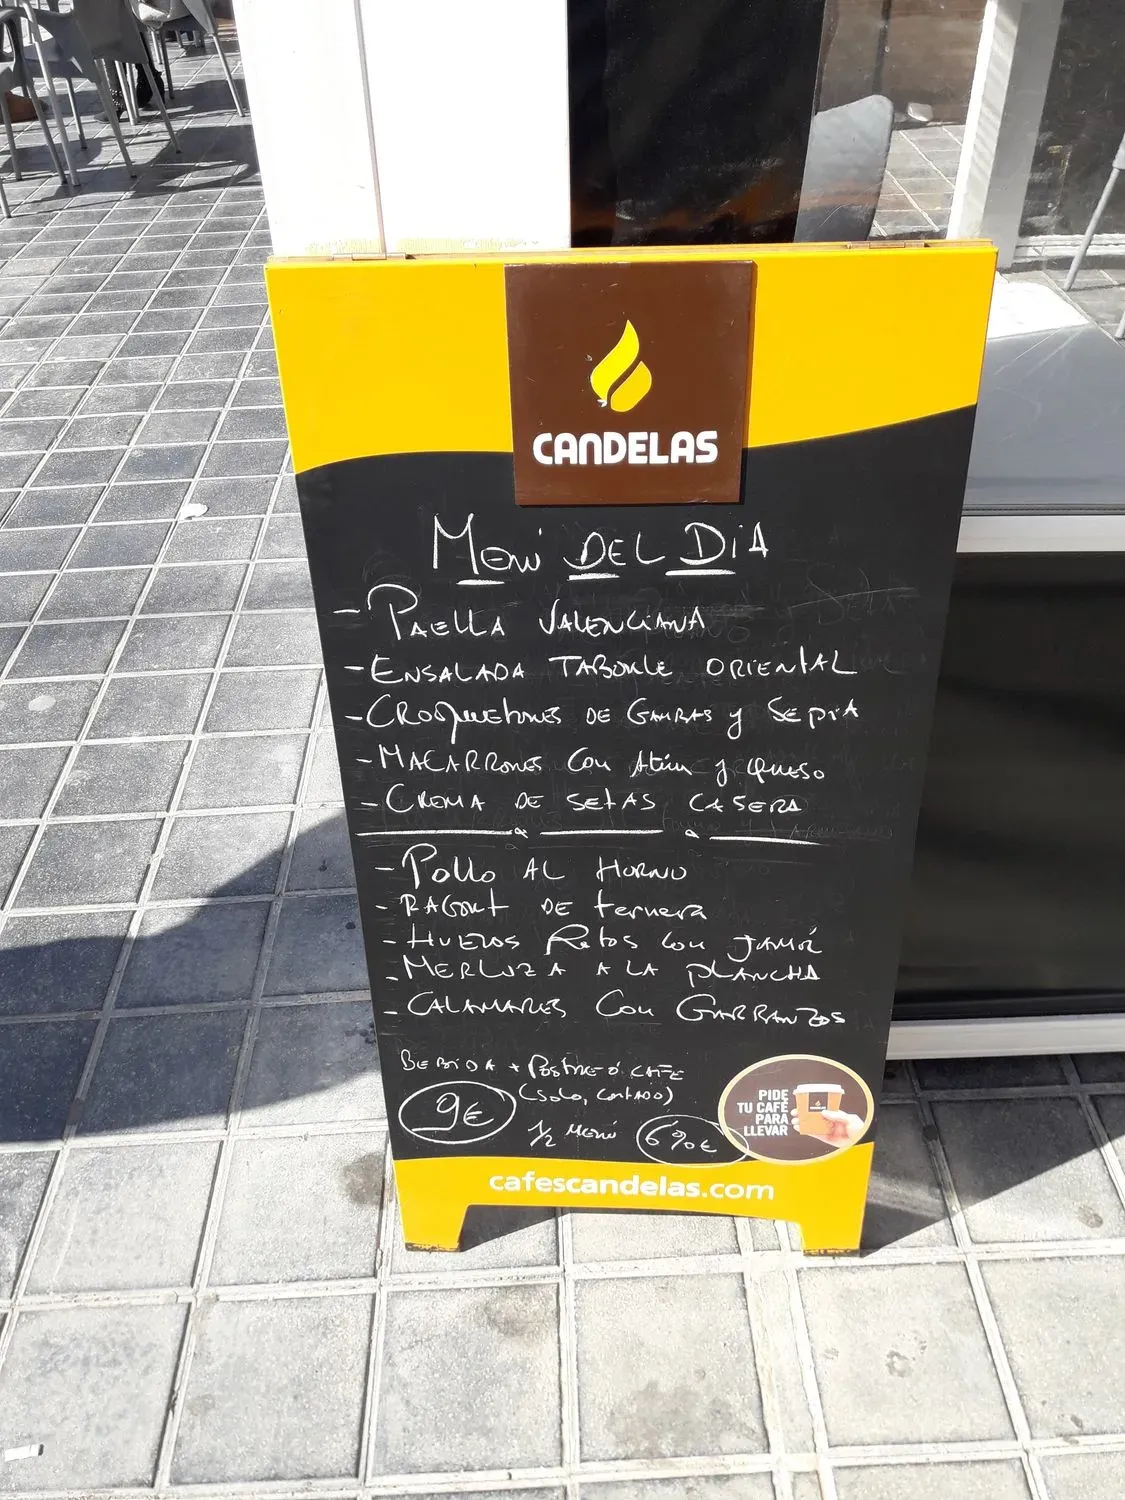 CANDELAS
Menú DEL DiA
- PAELLA VALENCIANA
- ENSALADA TABOULE ORIENTAL
- CROQUETONES DE GAMBAS y SEPIA
- MACARRONES Con Atún y queso
- CREMA DE SETAS CASERA
- Pollo AL HORNO
- RAGOUT DE ternera
- HUEVOS Rotos con JAMÓN
- MERLUZA A LA PLANCHA
- CALAMARES Con GARBANZOS
BEBIDA + POSTRE Ó CAFE
(SOLO, CORTADO)
9€
1/2 MENÚ 6'90€
PIDE
TU CAFÉ
PARA
LLEVAR
cafescandelas.com